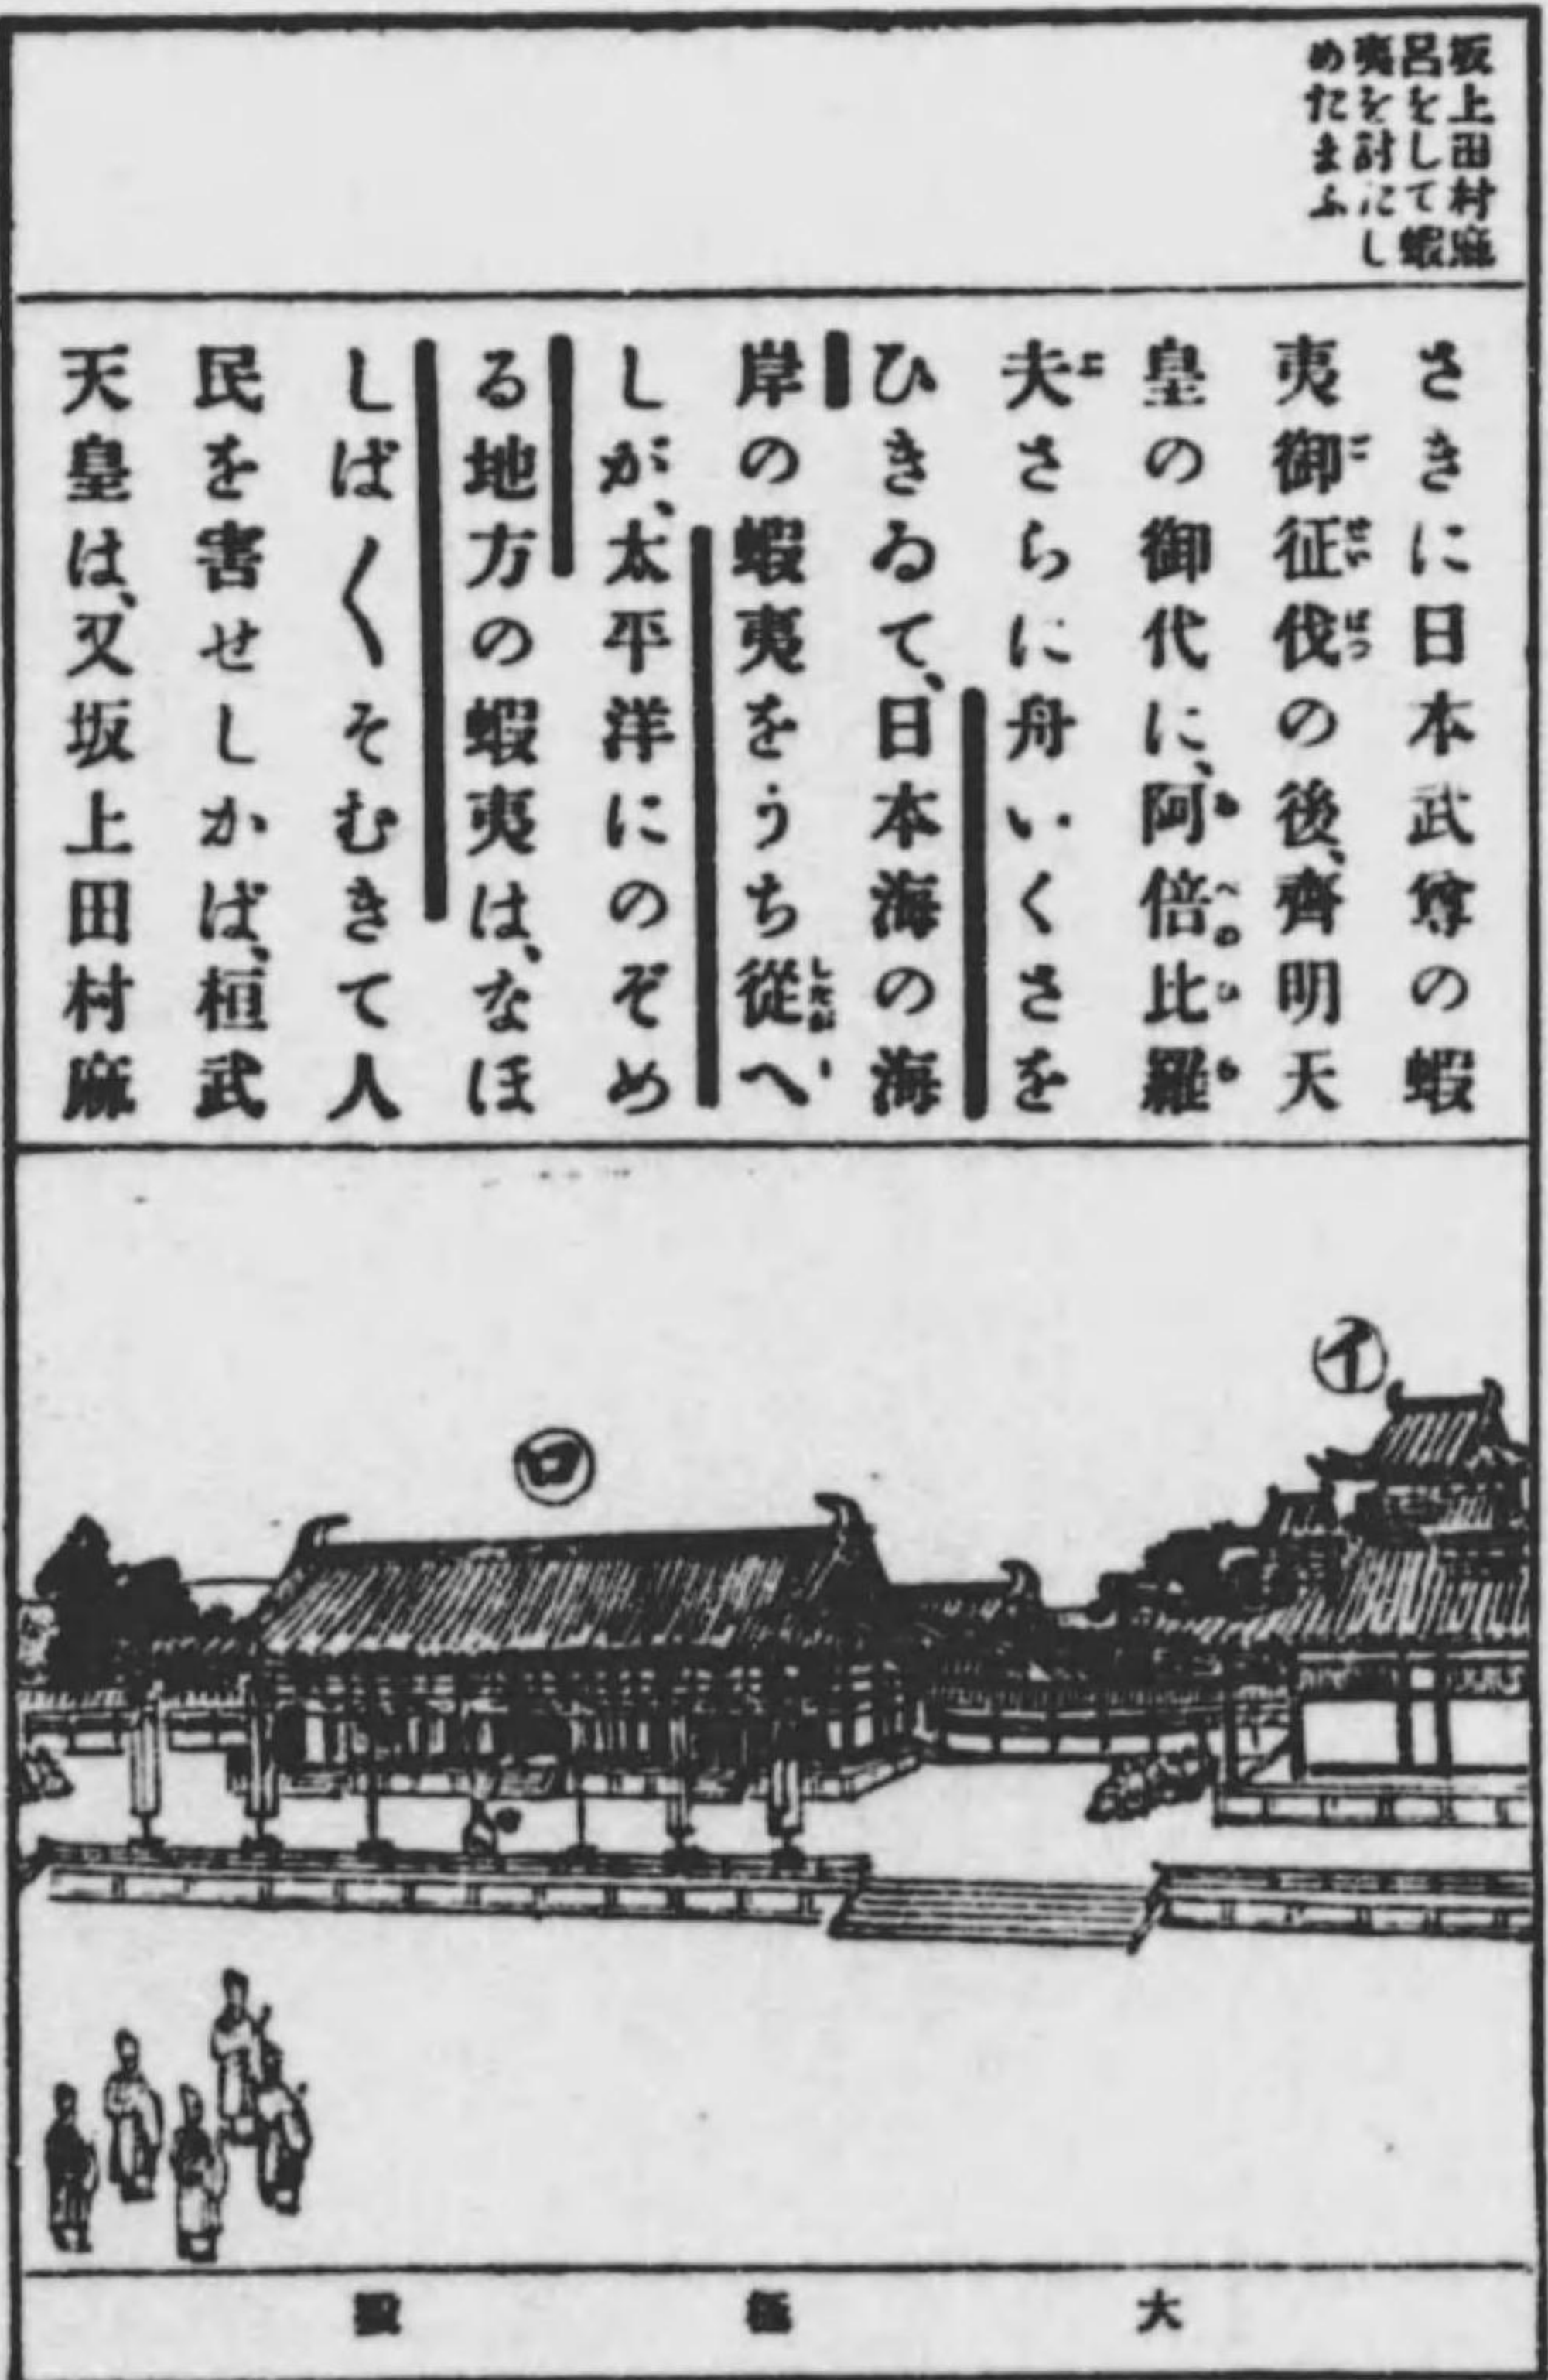 坂上田村麻
呂をして蝦
夷を討にし
めたまふ
さきに日本武尊の蝦
夷御征伐の後、齊明天
皇の御代に、阿倍比羅
夫さらに舟いくさを
ひきゐて、日本海の海
岸の蝦夷をうち從へ
しが、太平洋にのぞめ
る地方の蝦夷は、なほ
しば〱そむきて人
民を害せしかば、桓武
天皇は、又坂上田村麻
イ
ロ
大極殿